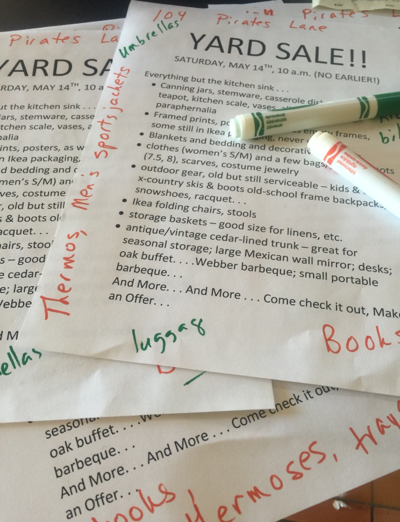 104 Pirates Lane
Pirates Lane
Pirates La
umbrellas
YARD SALE!!
SATURDAY, MAY 14TH, 10 a.m. (NO EARLIER!)
Everything but the kitchen sink . . .
• Canning jars, stemware, casserole
teapot, kitchen scale, vases,
paraphernalia
• Framed prints, frames,
some still in Ikea never
• Blankets and bedding and
• clothes (women's S/M) and a few bags
(7.5, 8), scarves, costume jewelry
• outdoor gear, old but still serviceable – kids &
x-country skis & boots old-school frame backpacks
snowshoes, racquet. . .
• Ikea folding chairs, stools
• storage baskets – good size for linens, etc.
• antique/vintage cedar-lined trunk – great for
seasonal storage; large Mexican wall mirror; desks;
oak buffet. . . .Webber barbeque; small portable
barbeque. . .
And More. . . And More . . . Come check it out, Make
an Offer. . .
Thermos, Men's sport jackets
luggag
Books
YARD SA
SATURDAY, MAY 14TH, 10 a
but the kitchen sink . . .
jars, stemware, cass
kitchen scale, vases
in Ikea packaging,
women's S/M)
scarves, costume
, old but still
s & boots ol
acquet. . .
airs, stool
s – good
e cedar-
e; large
Webbe
d M
ellas
seasonal
oak buffet. . . .
barbeque. . .
And More. . . And More . . . Come check it out,
an Offer. . .
books
hermoses, trav